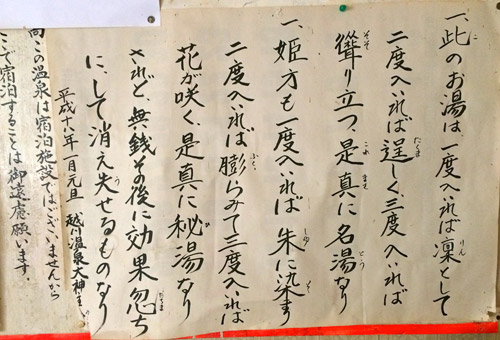 一、此のお湯は、一度入いれば凛として
二度入いれば逞しく、三度入いれば
聳り立つ、是真に名湯なり
一、姫方も一度入いれば朱に染まり
二度入いれば膨らみて三度入いれば
花が咲く、是真に秘湯なり
されど、無銭その後に効果忽ち
に、して消え失せるものなり
平成十八年一月元旦 越川温泉大神主
尚この温泉は宿泊施設ではございませんから
ここで宿泊することは御遠慮願います。